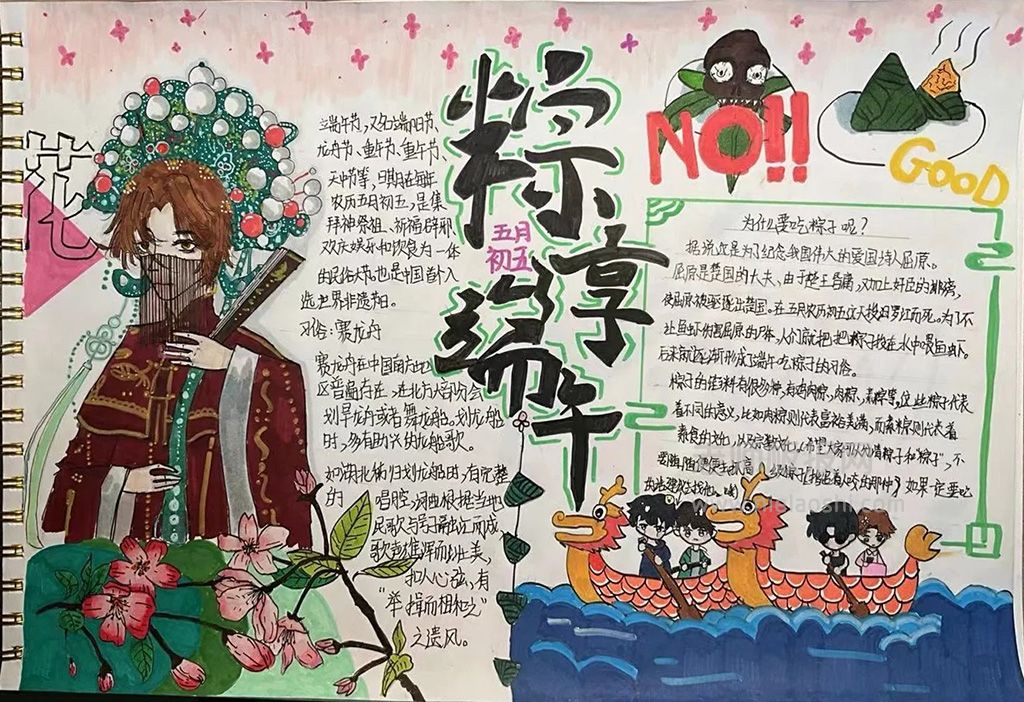 花
粽享端午
五月
初五
NO!!
GOOD
端午节，又名端阳节、
龙舟节、重午节、重午节、
天中节等，日期在每年
农历五月初五，是集
拜神祭祖、祈福辟邪
欢庆娱乐和饮食为一体
的民俗大节，也是中国首个入
选世界非遗节日。
习俗：赛龙舟
赛龙舟在中国南方地
区普遍存在，在北方大部分会
划旱龙舟或者舞龙船。划龙船
时，多有助兴的龙船歌。
如湖北秭归划龙船时，有完整
的唱腔，词曲根据当地
民歌与号子融汇而成，
歌声雄浑而壮美，
扣人心弦，有
“举揖而相和之”
之遗风。
为什么要吃粽子呢？
据说这是为纪念我国伟大的爱国诗人屈原。
屈原是楚国的大夫、由于楚王昏庸，又加上奸臣的排挤，
使屈原被驱逐出楚国。在五月农历初五这天投汨罗江而死。为了不
让鱼虾伤害屈原的尸体，人们就把把粽子投在水中喂鱼虾。
后来就逐渐形成了端午吃粽子的习俗。
粽子的佐料有很多种，有鸡肉粽、肉粽、素粽等。这些粽子代表
着不同的意义，比如肉粽则代表富裕美满，而素粽则代表着